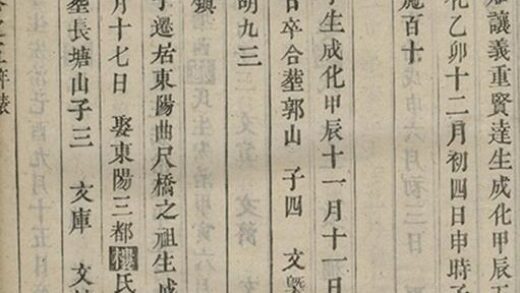 讓義重賢達生成化甲辰
化乙卯十二月初四日申時子
百十
生成化甲辰十一月十一日
日卒合塟郭山 子四 文
明九三
鎮
子遷居東陽曲尺橋之祖生成
月十七日 娶東陽三都樓氏
塟長塘山子三 文庫 文